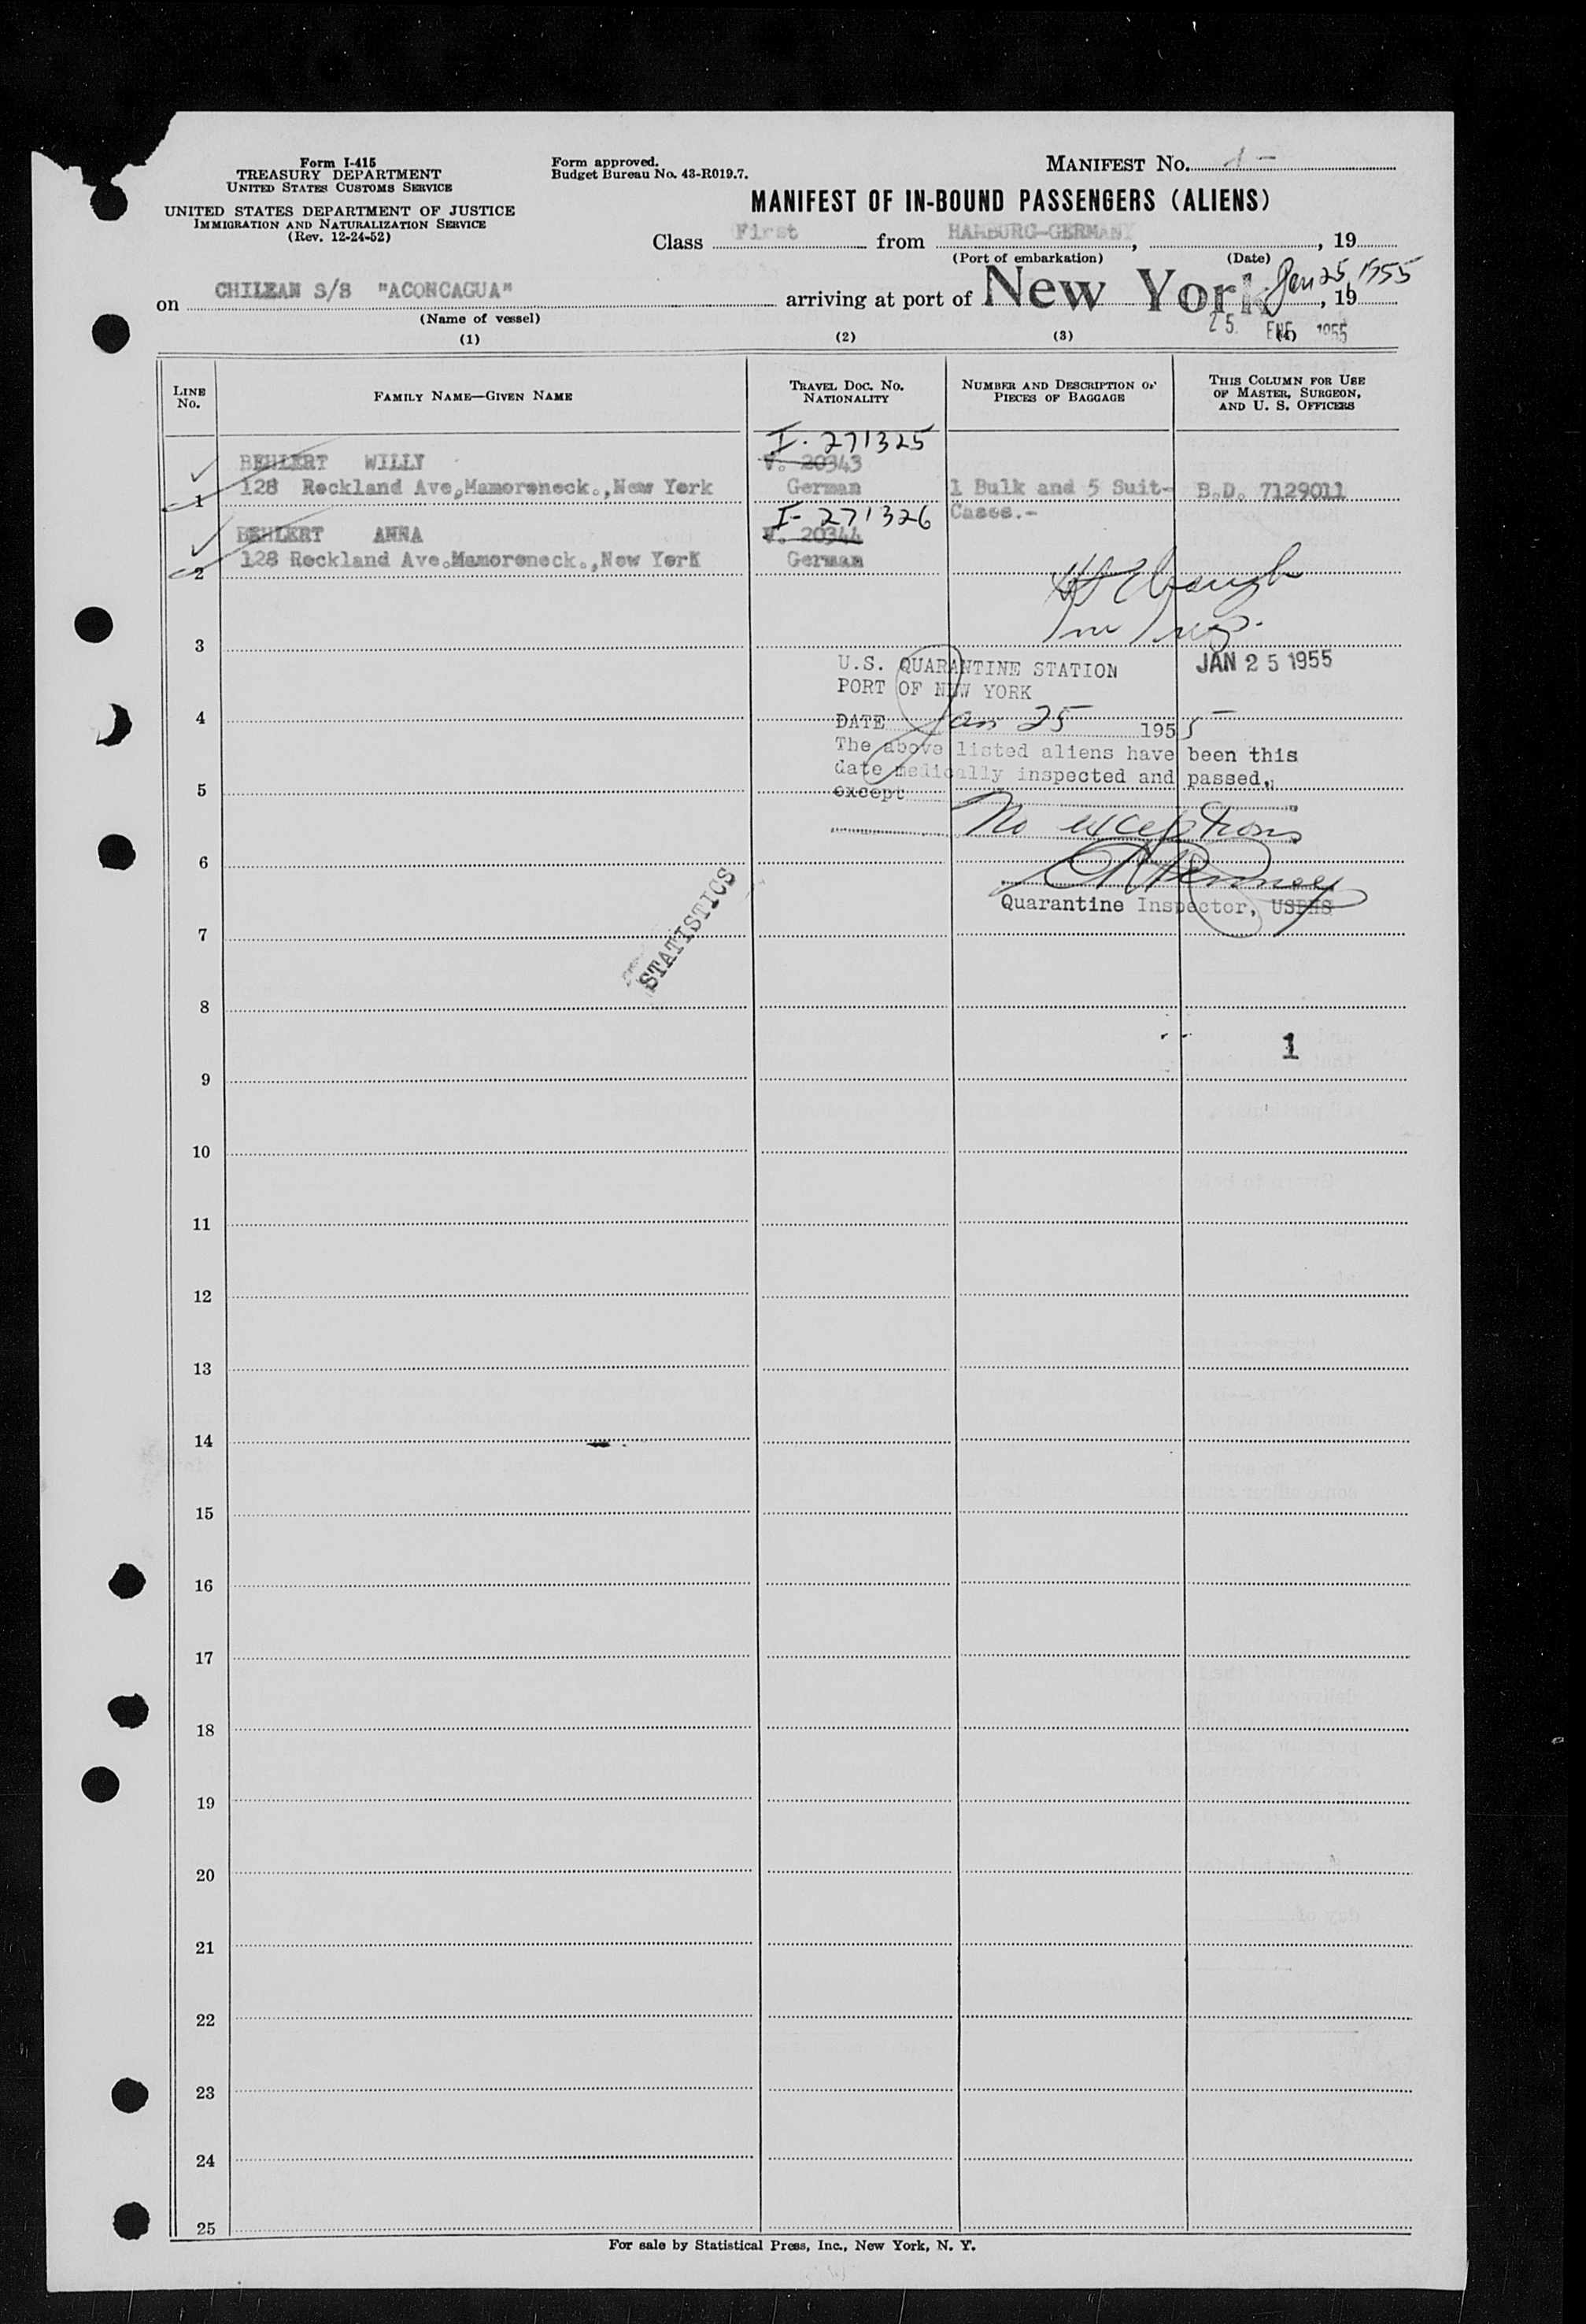 Form I-415
TREASURY DEPARTMENT
UNITED STATES CUSTOMS SERVICE
UNITED STATES DEPARTMENT OF JUSTICE
IMMIGRATION AND NATURALIZATION SERVICE
(Rev. 12-24-52)
Form approved.
Budget Bureau No. 43-R019.7.
MANIFEST No. 1-
MANIFEST OF IN-BOUND PASSENGERS (ALIENS)
Class First from HAMBURG-GERMANY, , 19
(Port of embarkation) (Date)
on CHILEAN S/S "ACONCAGUA" arriving at port of New York Jan 25, 1955, 19
(Name of vessel)
25 ENE 1955
(1) (2) (3) (4)
LINE No.
FAMILY NAME—GIVEN NAME
TRAVEL DOC. NO. NATIONALITY
NUMBER AND DESCRIPTION OF PIECES OF BAGGAGE
THIS COLUMN FOR USE OF MASTER, SURGEON, AND U. S. OFFICERS
I-271325
BEHLERT WILLY V. 20343
1 128 Rockland Ave,Mamoroneck.,New York German 1 Bulk and 5 Suit- B.D. 7129011
I-271326 Cases.-
BEHLERT ANNA V. 20344
2 128 Rockland Ave.Mamoroneck.,New York German
3
JAN 25 1955
U.S. QUARANTINE STATION
PORT OF NEW YORK
4
DATE Jan 25 1955
The above listed aliens have been this
date medically inspected and passed,
5
except
No exceptions
6
Quarantine Inspector, USPHS
STATISTICS
7
8
1
9
10
11
12
13
14
15
16
17
18
19
20
21
22
23
24
25
For sale by Statistical Press, Inc., New York, N. Y.